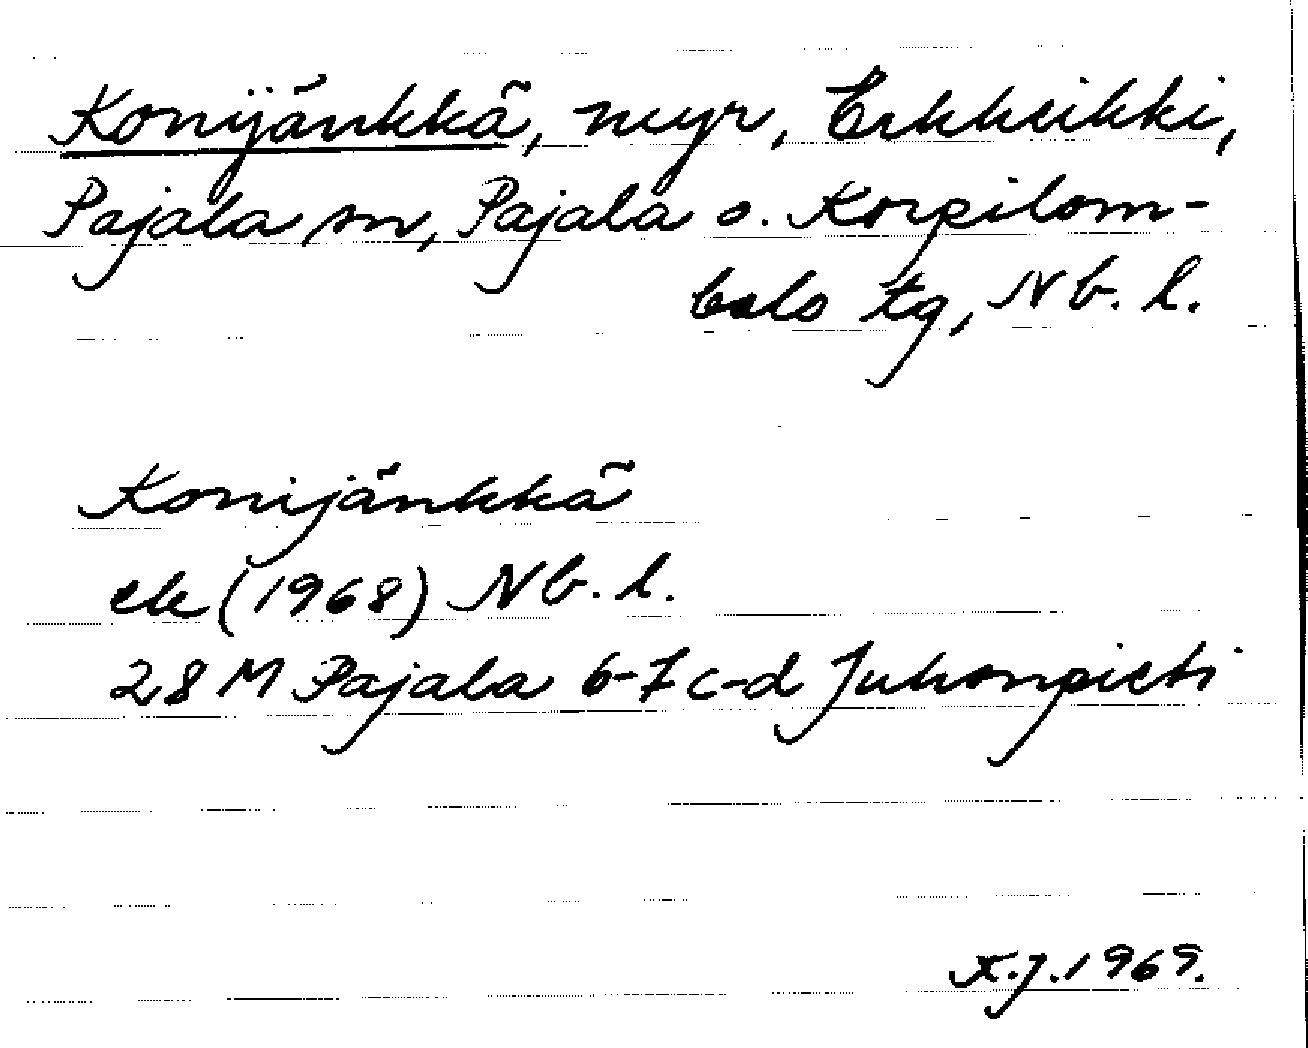 Konijänkkä, myr, Erkheikki,
Pajala sn, Pajala o. Korpilom-
bolo tg, Nb. l.
Konijänkkä
ek (1968) Nb. l.
28 M Pajala 6-7 c-d Juhonpieti
K.J. 1969.